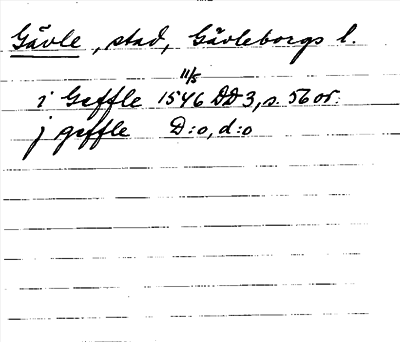 Gävle, stad, Gävleborgs l.
11/5
i Geffle 1546 DD 3, s. 56 or.
j geffle D:o, d:o